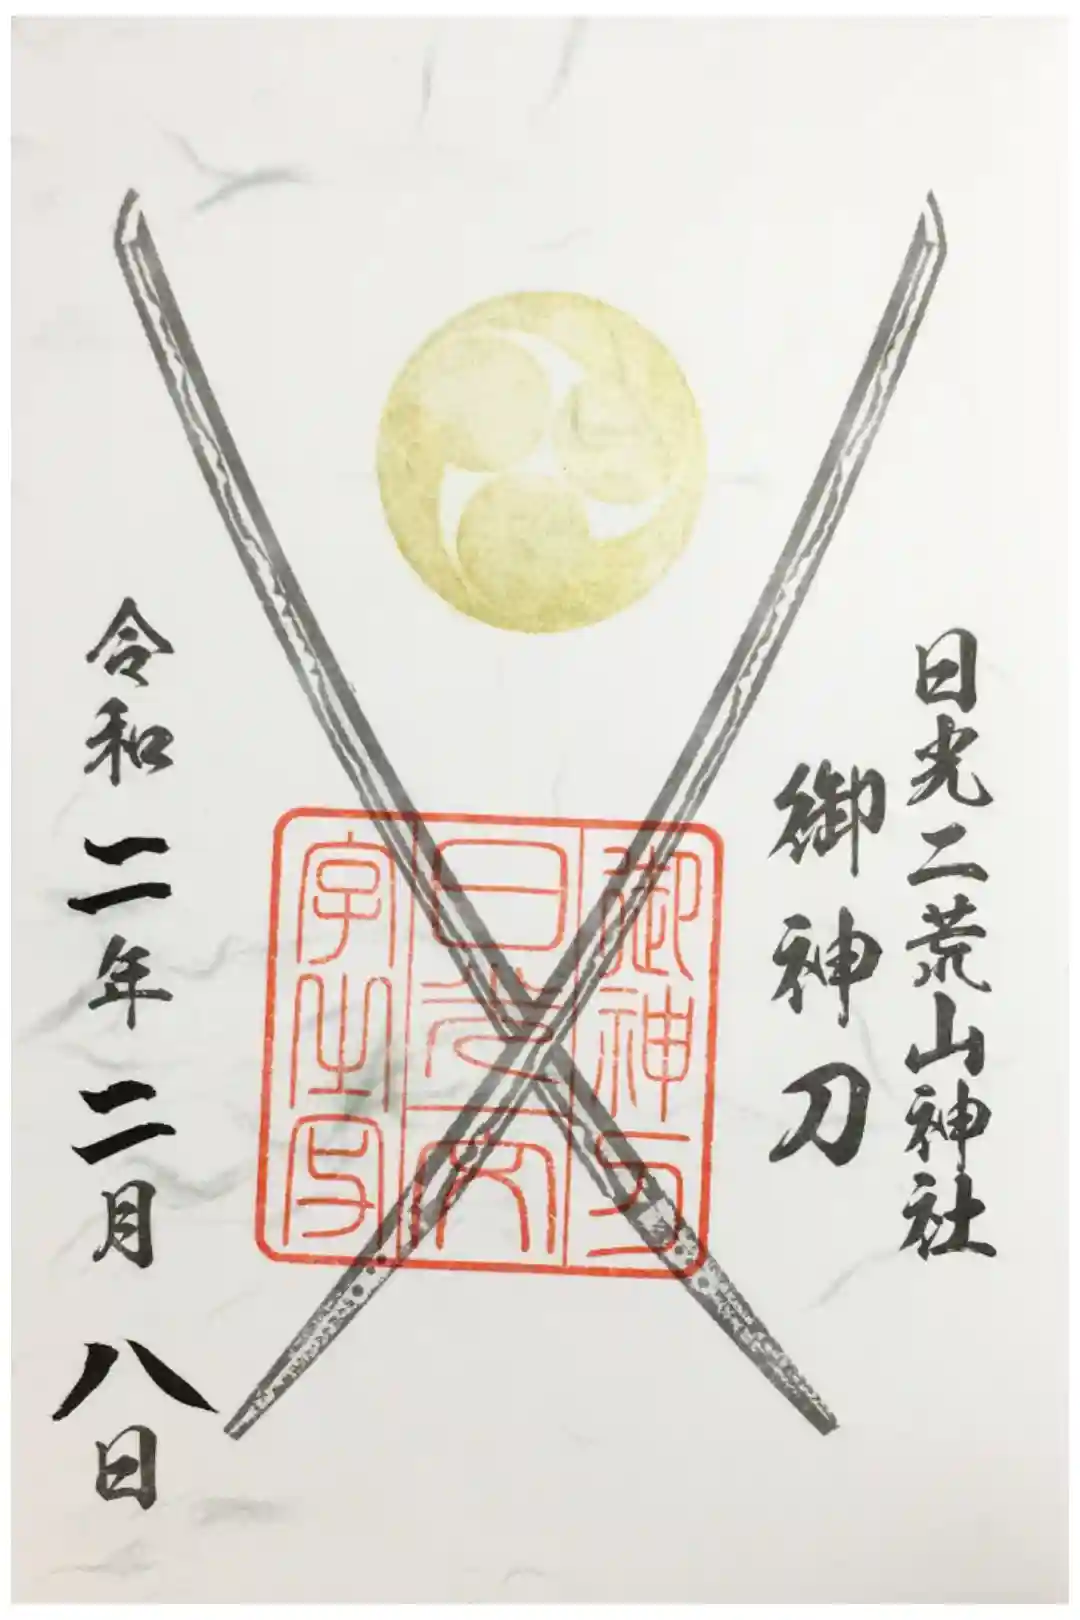 日光二荒山神社
御神刀
御神刀
日光一文
字之写
令和二年二月八日